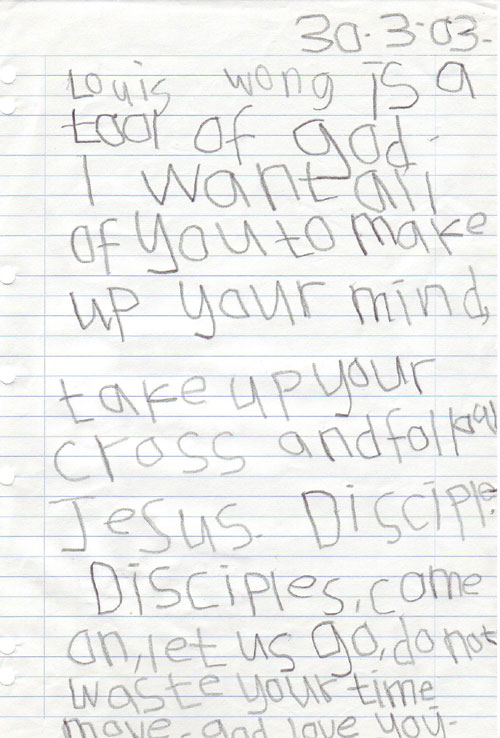 30.3.03.
Louis wong is a
tool of god.
I want all
of you to make
up your mind,
take up your
cross and follow
Jesus. Disciple
Disciples, come
on, let us go, do not
waste your time
move. god love you.